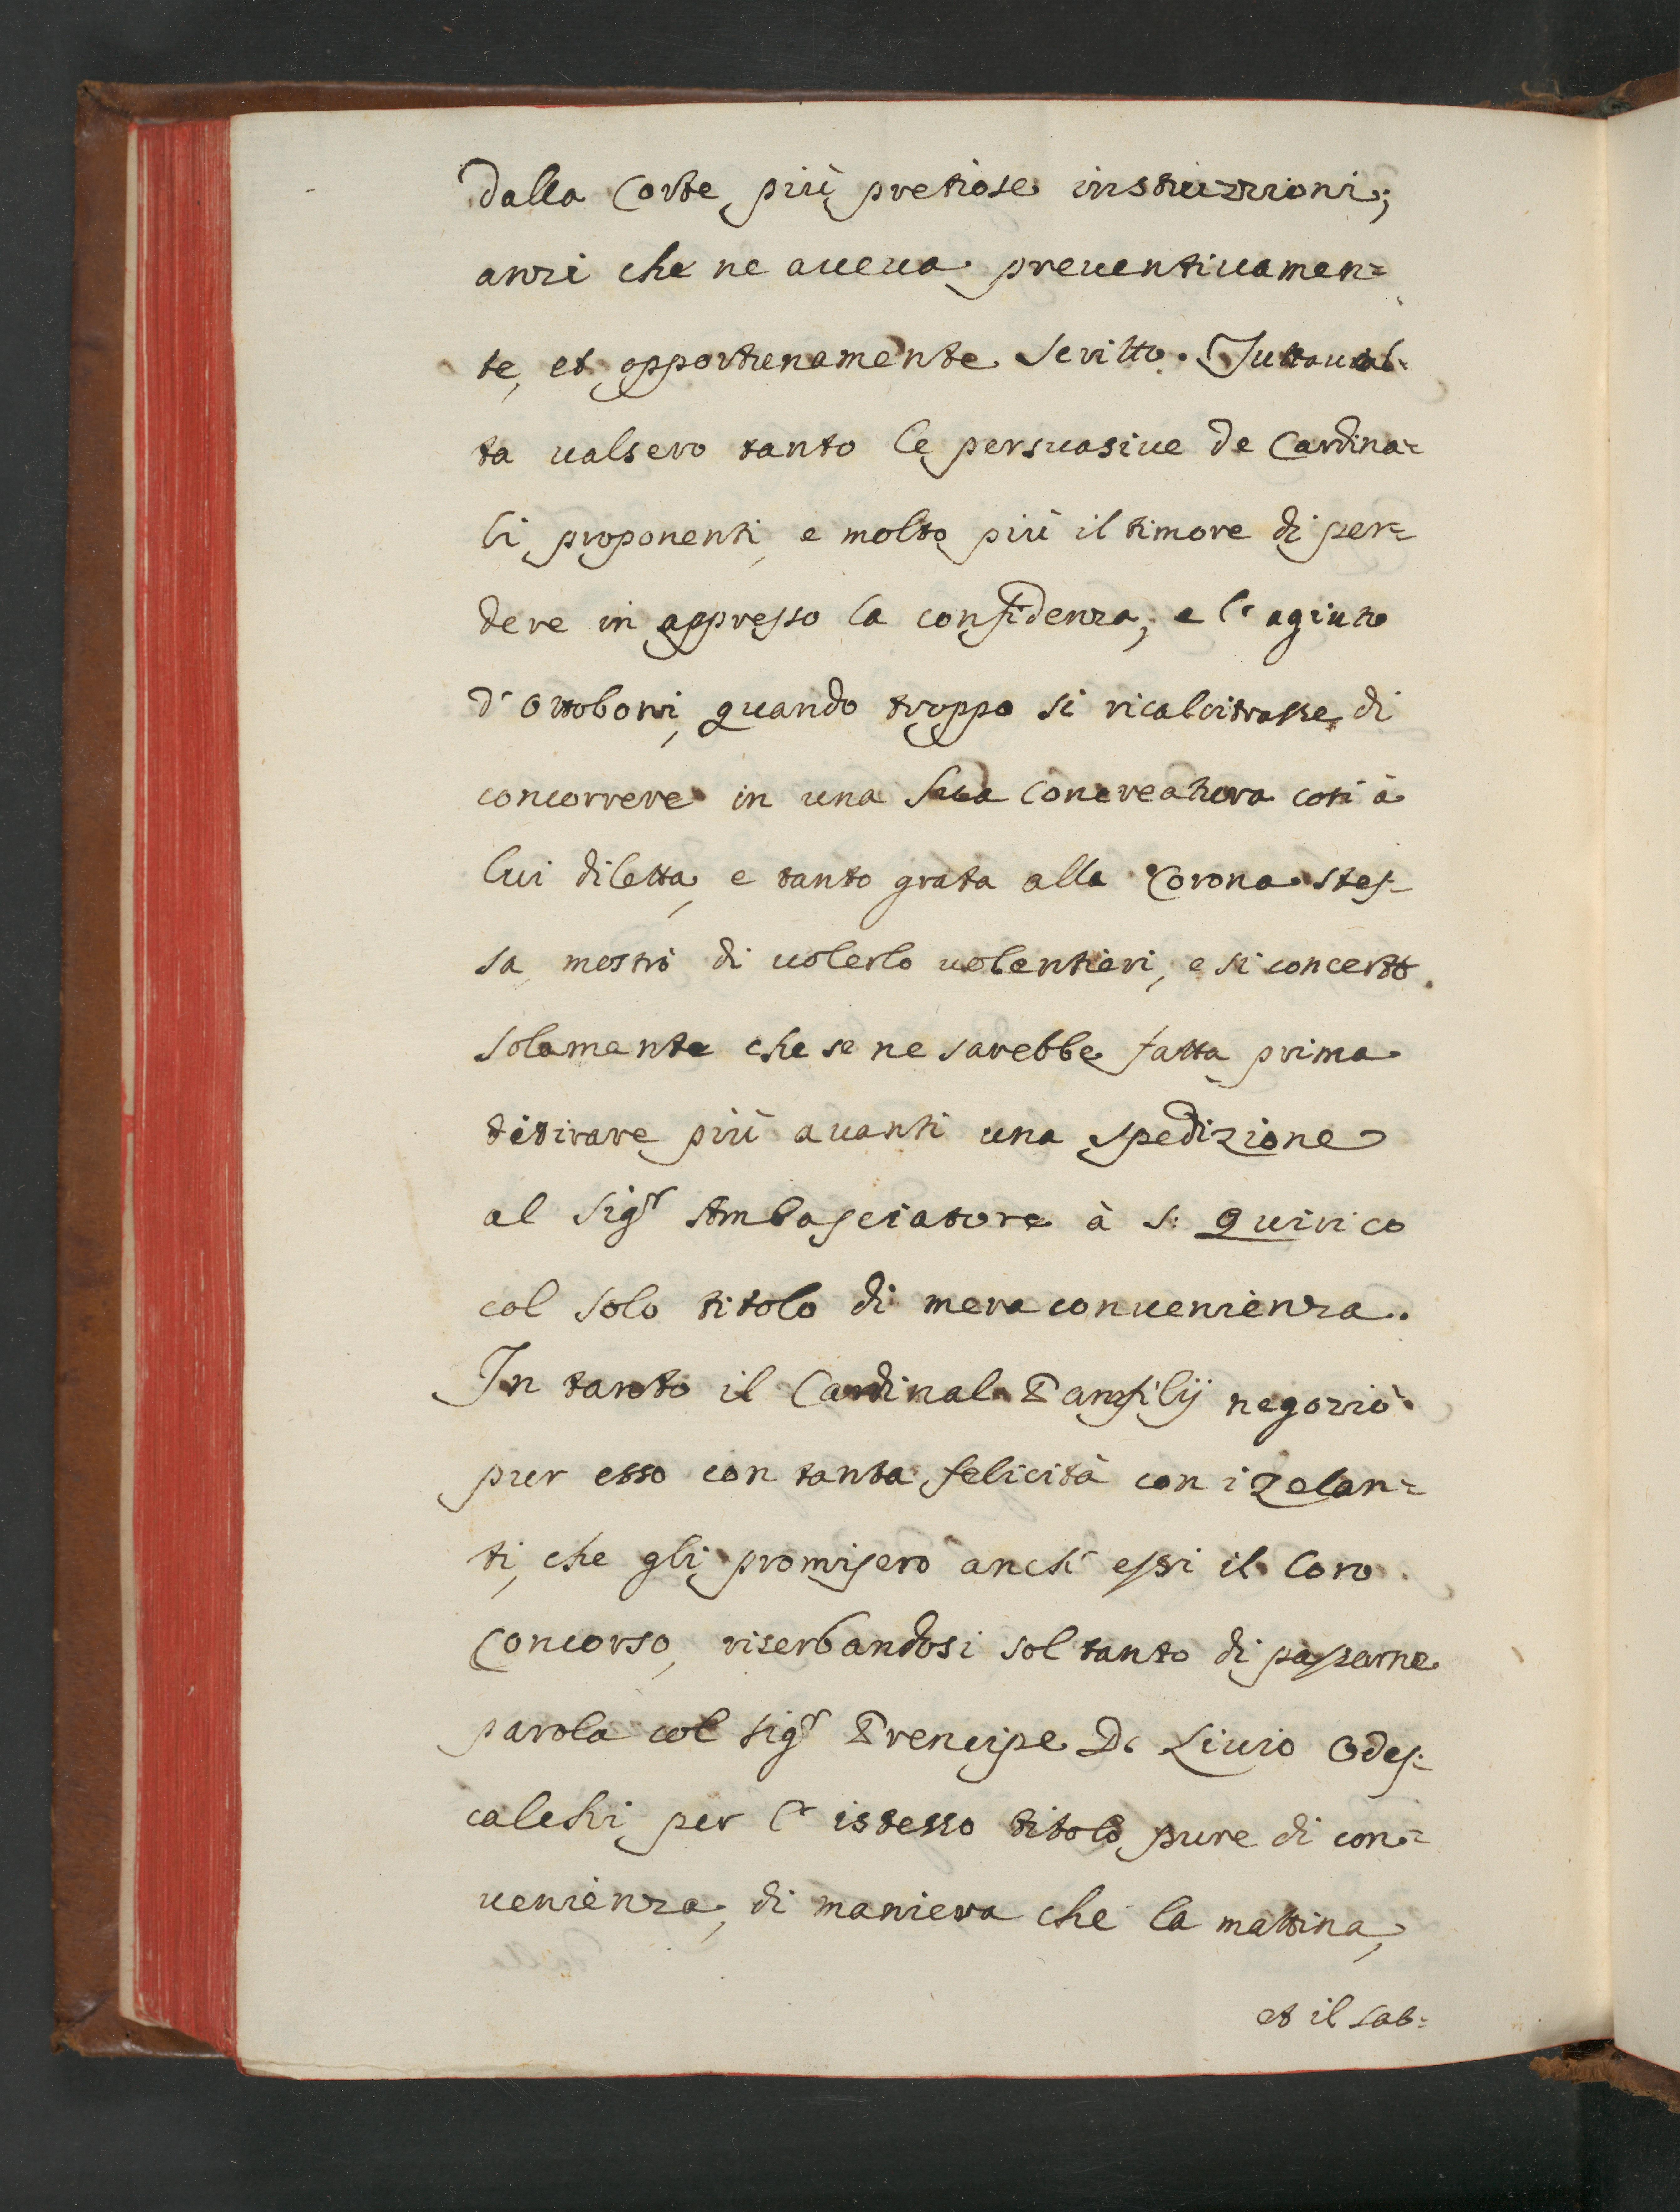 dalla Corte più pretiose instruzzioni;
anzi che ne aueua preuentiuamen=
te, et opportunamente scritto. Tuttauol=
ta ualsero tanto le persuasiue de Cardina=
li proponenti, e molto più il timore di per=
dere in appresso la confidenza; e l'agiuto
d'Ottoboni, quando troppo si ricalcitrasse di
concorrere in una sua Concreatura così à
lui diletta, e tanto grata alla Corona stes=
sa, mostrò di uolerlo uolentieri, e si concertò
solamente che se ne sarebbe fatta prima
di tirare più auanti una spedizione
al Sigr Ambasciatore à S: Quirico
col solo titolo di mera conuenienza.
In tanto il Cardinal Panfilij negoziò
pur esso con tanta felicità con i zelan=
ti, che gli promisero anch' essi il loro
Concorso, riserbandosi sol tanto di passarne
parola col Sigr Prencipe D. Liuio Odes=
calchi per l'istesso titolo pure di con=
uenienza, di maniera che la mattina,
et il sab=